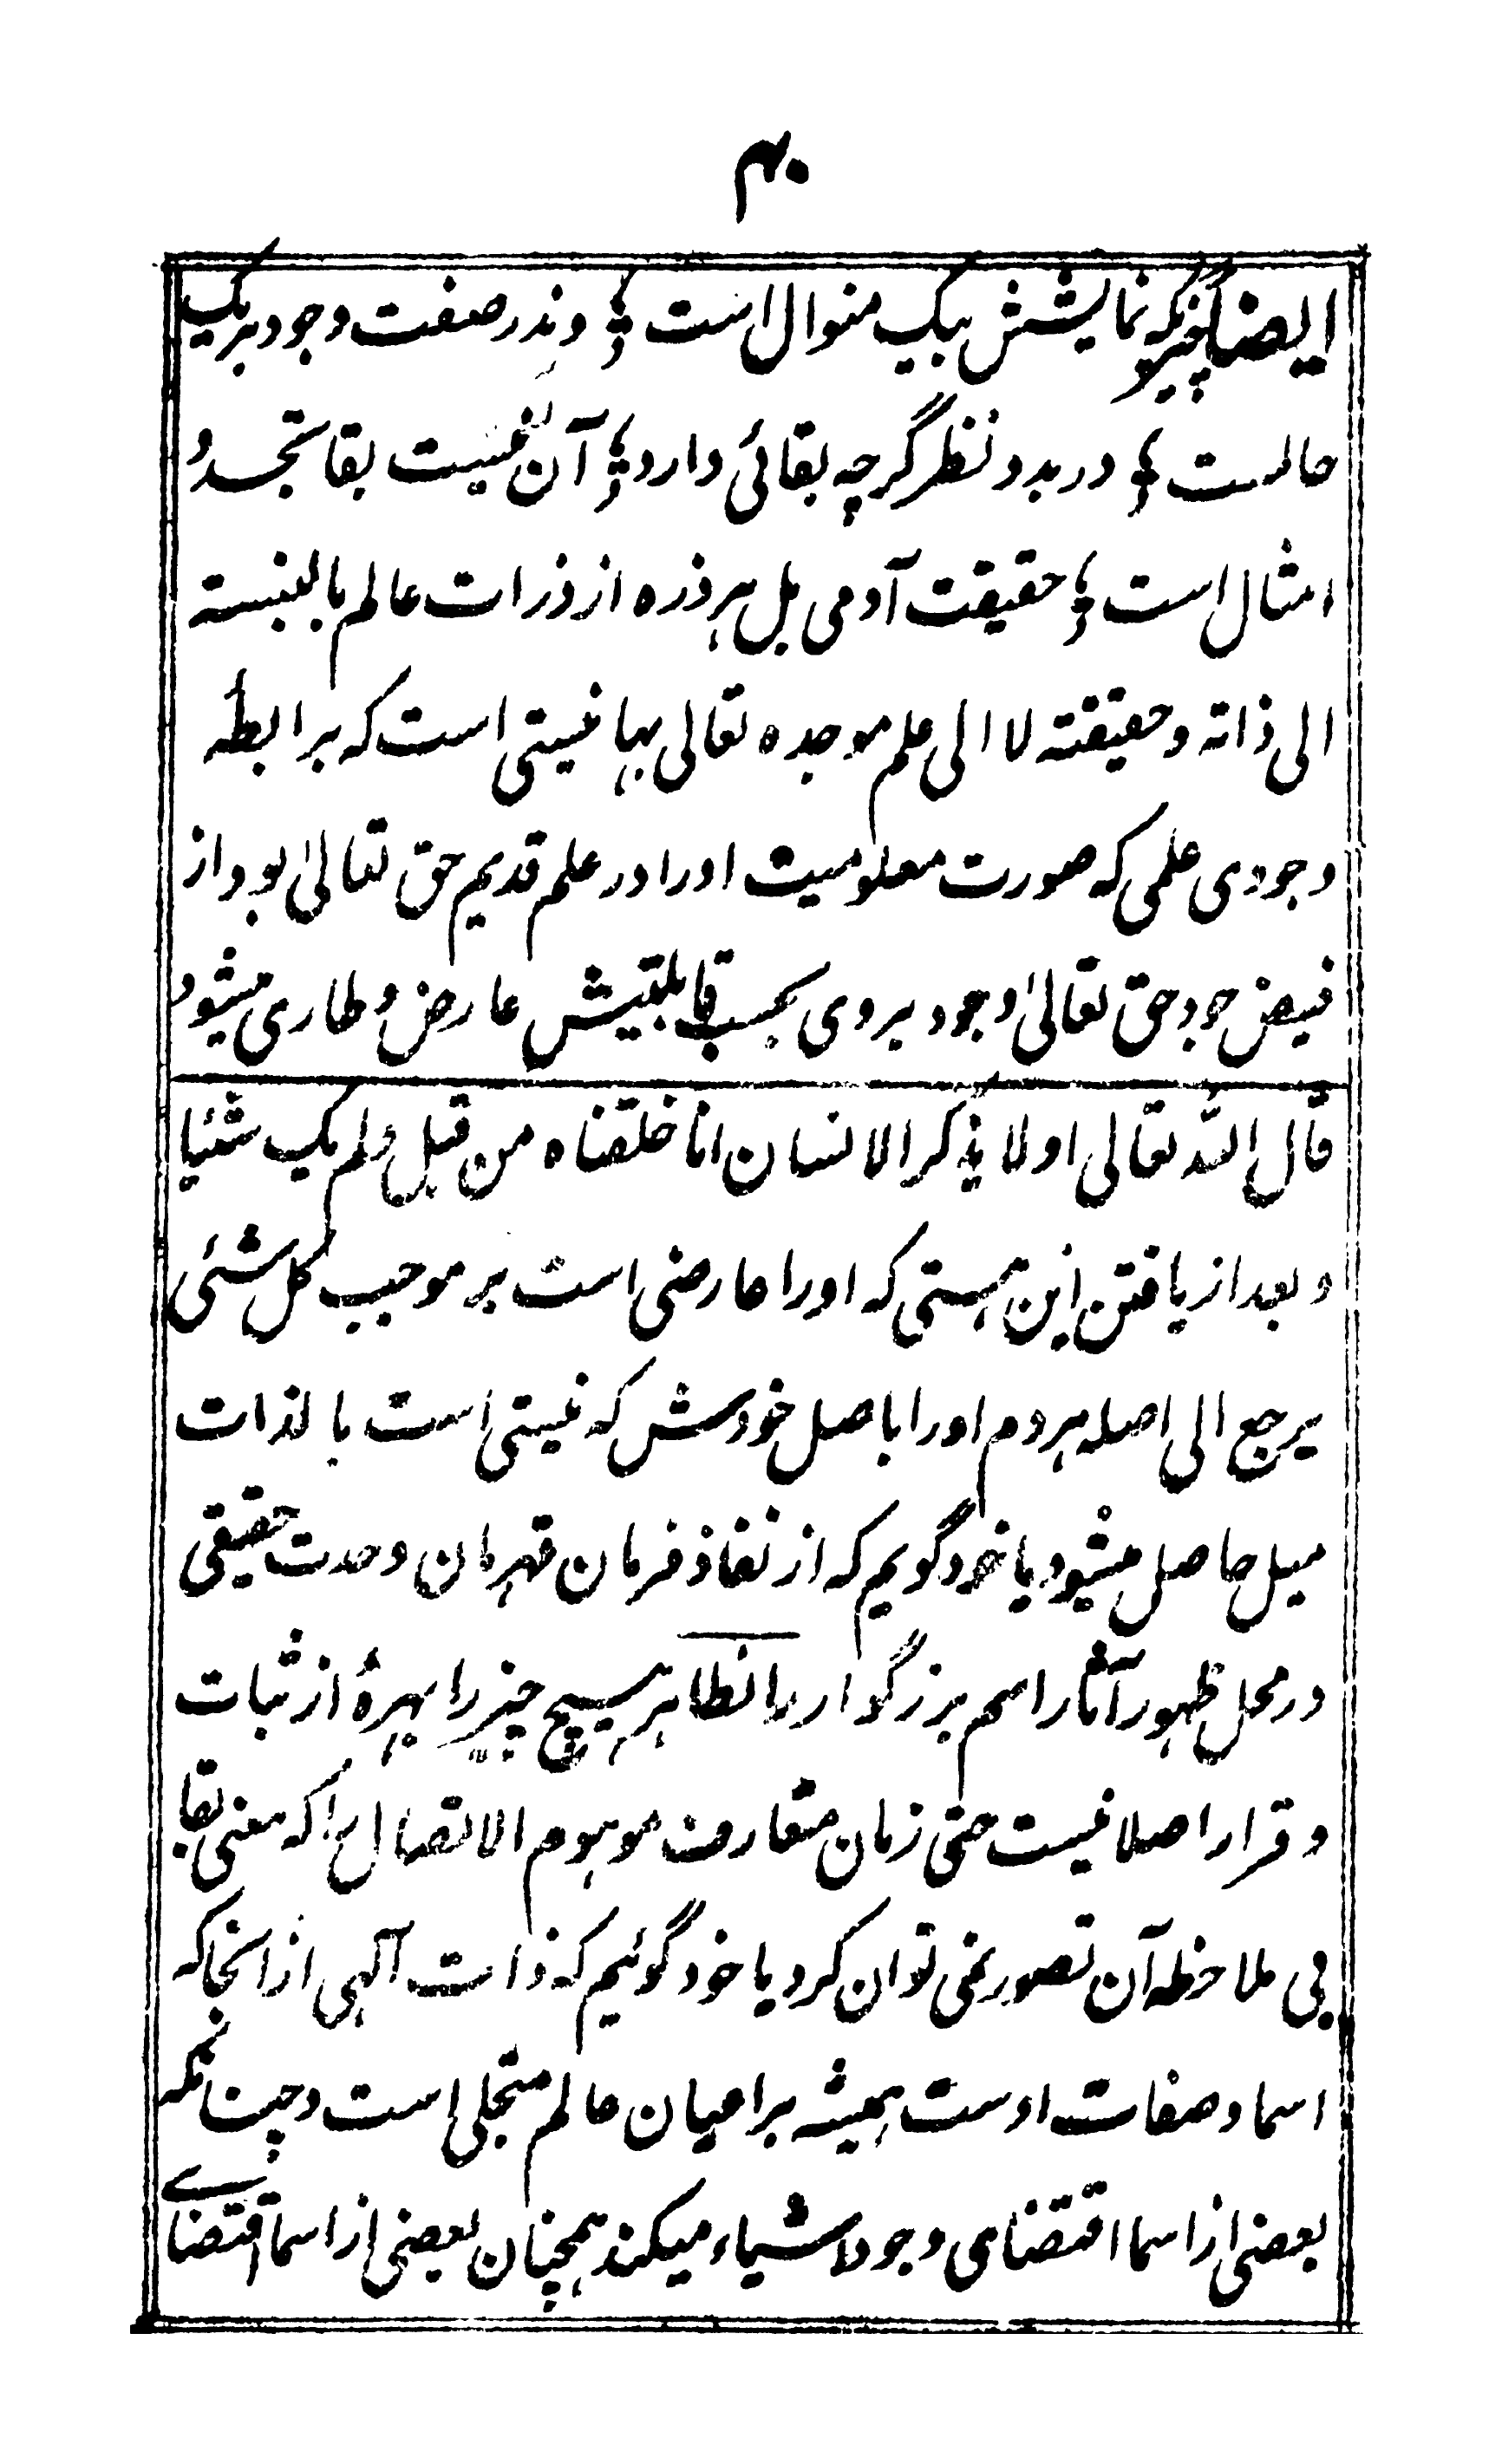 ۴۰
ایضا چیزیکه نمایشش بیک منوال است ؛ وندر صفت وجود بریک
حالست ؛ در بدو نظر گرچه بقائی دارد ؛ آن نیست بقا تجدد
امثال است ؛ حقیقت آدمی بل هر ذره از ذرات عالم بالنسبته
الی ذاته وحقیقته لا الی علم موجده تعالی بها نیستی است که برابطهٔ
وجودی علمی که صورت معلومیت اورا در علم قدیم حق تعالیٰ بود از
فیض جود حق تعالیٰ وجود بروی بحسب قابلیتش عارض و طاری میشود
قال الله تعالی اولا یذکر الانسان انا خلقناه من قبل ولم یک شئیا
و بعد از یافتن این هستی که اورا عارضی است بر موجب کل شئی
یرجع الی اصله هردم اورا باصل خودش که نیستی است بالذات
میل حاصل میشود یا خود گویم که از نفاذ فرمان قهرمان وحدت حقیقی
در محل ظهور آثار اسم بزرگوار یا ظاهر هیچ چیز را بهرهٔ از ثبات
و قرار اصلا نیست حتی زمان متعارف موهوم الاتصال را که معنی بقا
بی ملاحظه آن تصور نمی توان کرد یا خود گوئیم که ذات آلهی از انجا که
اسما و صفات اوست همیشه بر اعیان عالم متجلی است و چنانکه
بعضی از اسما اقتضای وجود اشیاء میکند همچنان بعضی از اسما اقتضاے